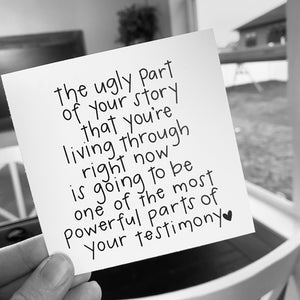 the ugly part
of your story
that you're
living through
right now
is going to be
one of the most
powerful parts of
your testimony♥